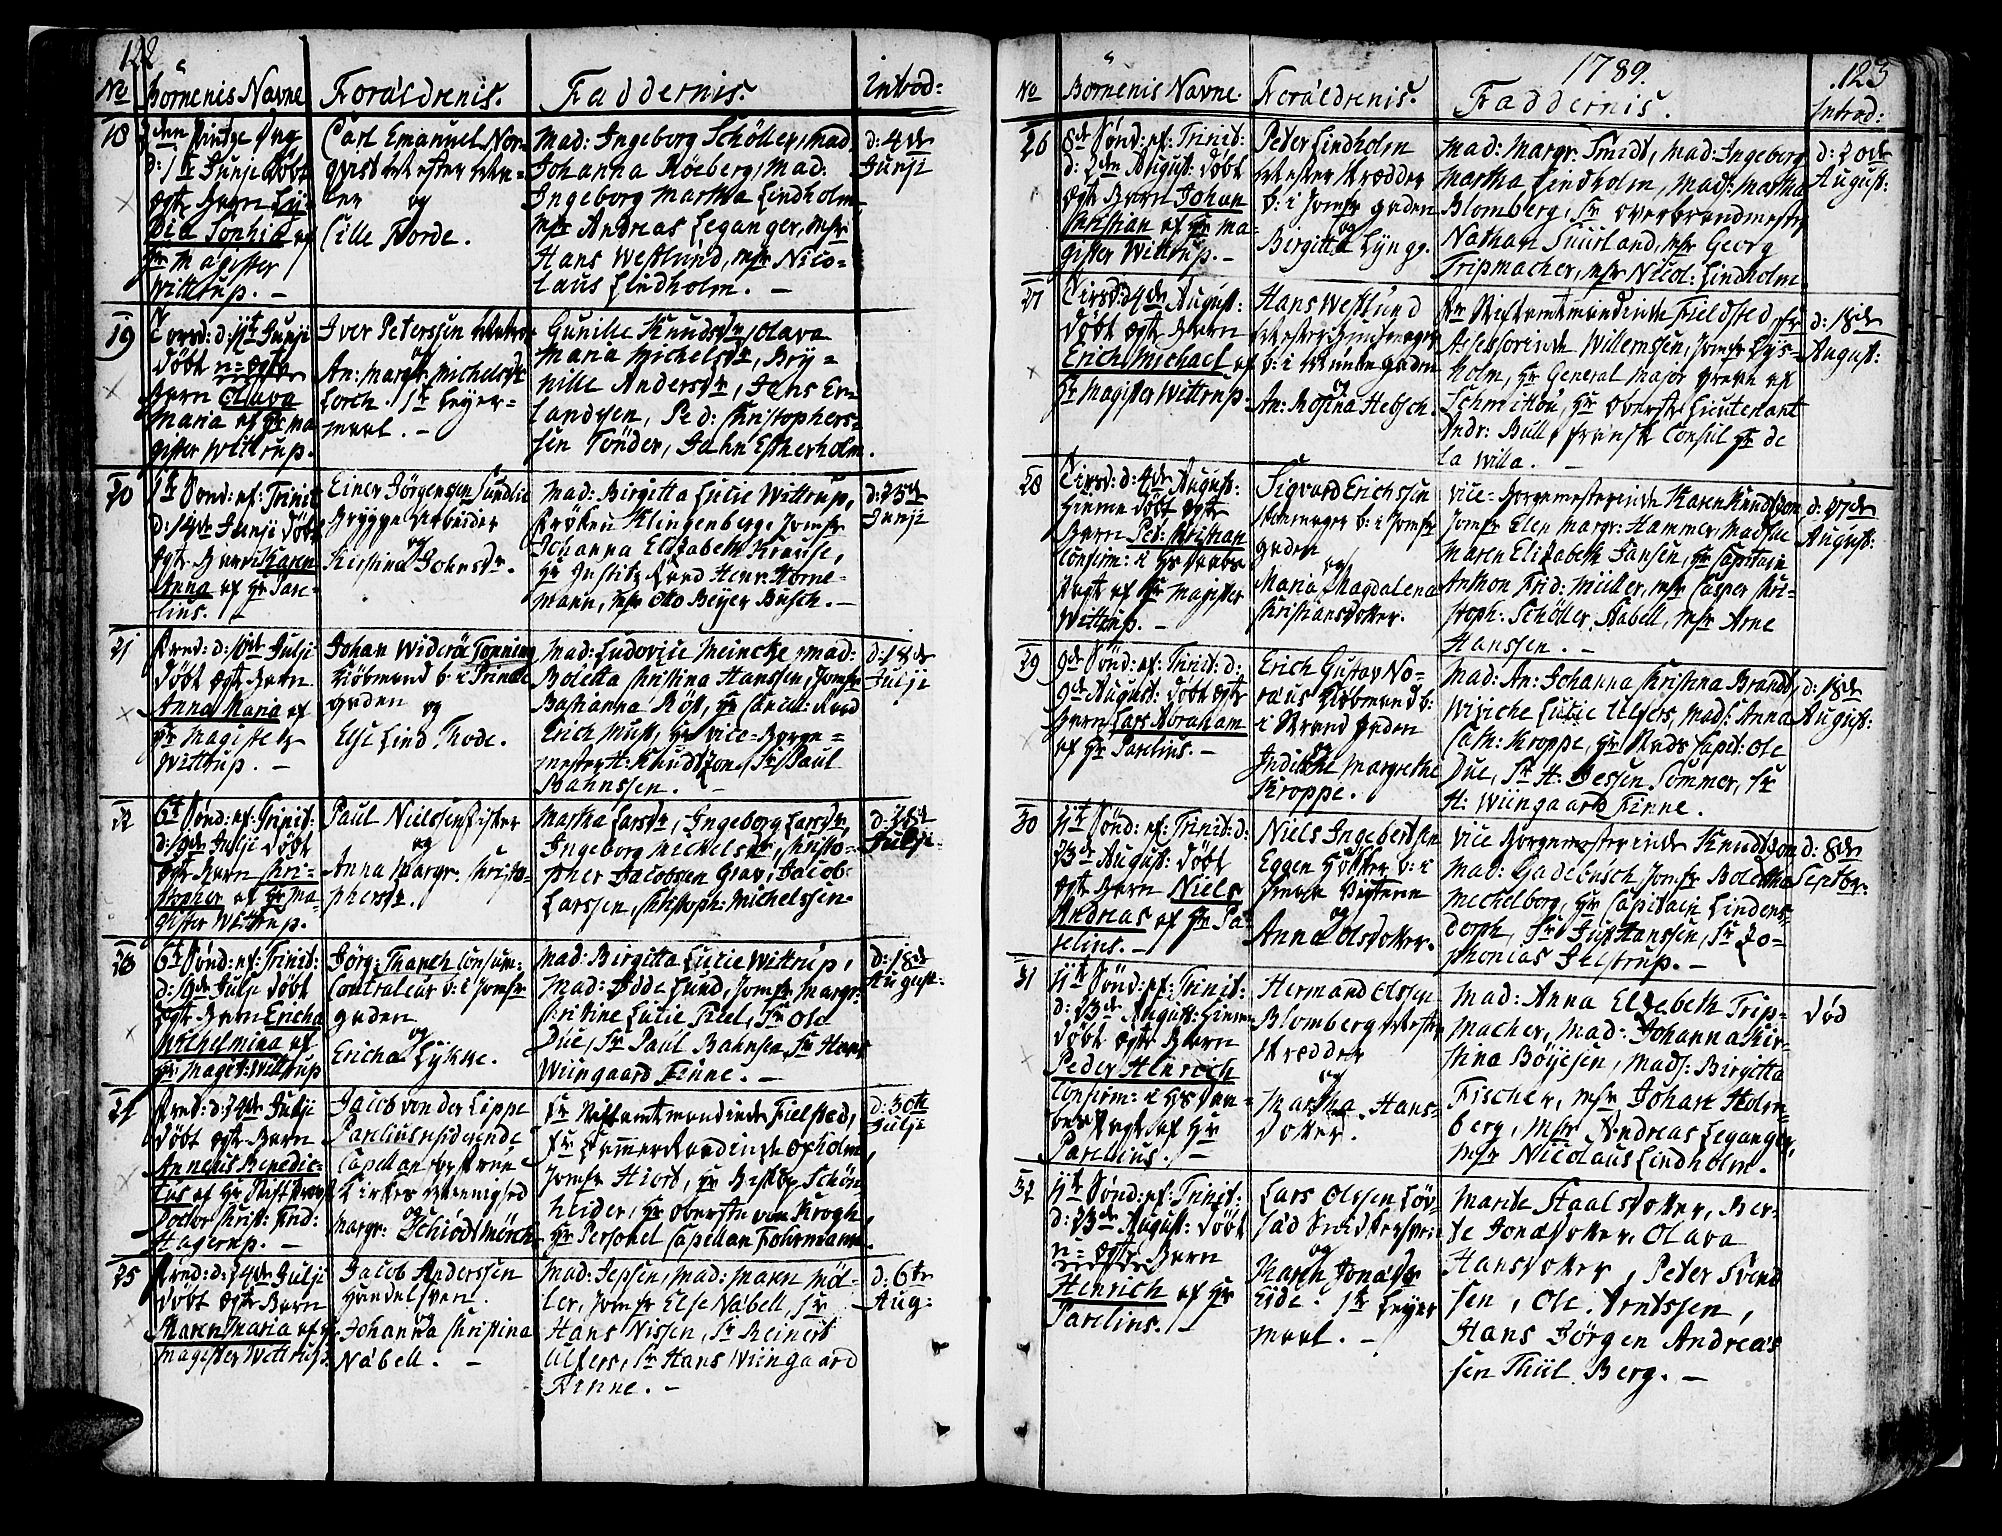 122
No
Börnenis Navne
Foræeldrenis.
Faddernis.
Introd:
18
2den Pintze Dag
d: 1te Junji döbt
ægte Barn Ly-
dia Sophia af
Hr Magister
Wittrup. –
Carl Emanuel Nor-
qvist Mester
og
Cille Florde.
Mad: Ingeborg Schöller, Mad
Johanna Röeberg, Mad:
Ingeborg Martha Lindholm
Msr Andreas Leganger, Msr
Hans Westlund, Msr Nico-
laus Lindholm. –
d: 4de
Junji
19
Torsd: d: 11te Junji
döbt u-ægte
Barn Olava
Maria af Hr Ma
gister Wittrup.
Iver Peterssen
og
An: Margr: Michelsdr
Lorch. 1te Leyer-
maal. –
Gunille Knudsdr, Olava
Maria Michelsdr, Bry-
nille Andersdr, Jens Er-
landsen, Ped: Christophers-
sen Tönder, Jahn Estherholm.
20
1te Sönd: ef: Trinit
d: 14de Junji döbt
ægte Barn Karen
Anna af Hr Pare-
lius. –
Einer Jörgensen Sundlie
Brygge Arbeider
og
Kirstina Johnsdr.
Mad: Birgitta Lucie Wittrup,
Fröken Klingenberg, Jomfr
Johanna Elizabeth Krause,
Hr Justitz Raad Henr: Horne-
mann, Msr Otto Beyer Busch. –
d: 25de
Junji
21
Fred: d: 10de Julji
döbt ægte Barn
Anna Maria af
Hr Magister
Wittrup. –
Johan Wideröe Tonning
Kiöbmand b: i Printze
gaden
og
Else Lind Thode.
Mad: Ludovice Meincke, Mad:
Boletta Christina Hanssen, Jomfr
Bastianna Röst, Hr Cancel: Raad
Erich Must, Hr Vice-Borge-
mester H: Knudtzon, Sr Paul
Bahnssen. –
d: 18de
Julji
22
6te Sönd: ef: Trinit:
d: 19de Julji döbt
ægte Barn Chri-
stopher af Hr Ma-
gister Wittrup.
Paul Nielssen Fisker
og
Anna Margr: Christo-
phersdr.
Martha Larsdr, Ingeborg Larsdr
Ingeborg Mickelsdr, Christo-
pher Jacobsen Grav, Jacob
Larssen, Christoph: Michelssen
d: 28de
Julji
23
6te Sönd: ef: Trinit:
d: 19de Julji döbt
ægte Barn Ericha
Wilhelmina af
Hr Magist: Wittrup
Jörg: Thareh Consum:
Contraleur b: i Jomfr
gaden
og
Ericha Lykke.
Mad: Birgitta Lucie Wittrup,
Mad: Edde Lund, Jomfr Margr:
Kirstine Lucie Piel, Sr Ole
Due, Sr Paul Bahnsen, Sr Hans
Wiingaard Finne. –
d: 18de
August:
24
Fred: d: 24de Julji
döbt ægte Barn
Anneus Benedic-
tus af Hr Stift Provst
Doctor Christ: Frid:
Hagerup. –
Jacob von der Lippe
Parelius residerende
Capellan og Frue
Kirkes Menighed
og
Margr: Schiödt Mörch
Fr Stiftamtmandinde Fielsted,
Fr Cammer Raadinde Oxholm
Jomfr Hiort, Hr Biskop Schön
heider, Hr Oberste von Krogh
Hr Personel Capellan Bohrmann.
d: 30te
Julji
25
Fred: d: 24de Julji
döbt ægte Barn
Maren Maria af Hr
Magister Wittrup
Jacob Anderssen
Handelsven.
og
Johanna Christina
Näbell. –
Mad: Jepsen, Mad: Maren Möl-
ler, Jomfr Else Näbell, Sr
Hans Nissen, Sr Reinert
Ulfers, Sr Hans Wiingaard
Finne. –
d: 6te
Aug:
1789.
123
No
Börnenis Navne.
Foræeldrenis.
Faddernis.
Introd:
26
8de Sönd: ef: Trinit:
d: 2den August: döbt
ægte Barn Johan
Christian af Hr Ma-
gister Wittrup. –
Peter Lindholm
Mester Skrædder
b: i Jomfr gaden
og
Birgitta Lyng.
Mad: Margr: Smidt, Mad: Ingeborg
Martha Lindholm, Mads: Martha
Blomberg, Sr Overbrandmester
Nathan Suurland, Msr Georg
Tripmacher, Msr Nicol: Lindholm
d: 20de
August:
27
Tirsd: d: 4de August:
döbt ægte Barn
Erich Michael af
Hr Magister Wittrup.
Hans Westlund
Mester
b: i Munkegaden
og
An: Rosina Hebsch.
Fr Stiftamtmandinde Fieldsted, Fr
Assessorinde Willemssen, Jomfr Lys-
holm, Hr General Major Greve af
Schmittou, Hr Oberste Lieutenant
Andr: Bull, Fransk Consul Hr de
la Willa. –
d: 18de
August:
28
Tirsd: d: 4de August:
hiemme döbt ægte
Barn Ped: Christian
Confirm: i Hs daabs
Pagt af Hr Magister
Wittrup. –
Sigvard Erichssen
Skomager b: i Jomfr
gaden
og
Maria Magdalena
Christiansdotter.
Vice-Borgemesterinde Karen Knudtzon
Jomfr Elen Margr: Hammer, Madslle
Maren Elizabeth Jansen, Hr Capitain
Anthon Frid: Müller, Msr Casper Chri-
stoph: Schöller Stabell, Msr Arne
Hanssen. –
d: 27de
August:
29
9de Sönd: ef: Trinit: d:
9de August: döbt ægte
Barn Lars Abraham
af Hr Parelius. –
Erich Gustav No-
räus Kiöbmand b:
i Strand gaden
og
Indiche Margrethe
Kroppe.
Mad: An: Johanna Christina Brandt,
Wiviche Lucie Ulfers, Mads: Anna
Cath: Kroppe, Hr Raads Capit: Ole
Due, Sr H: Jessen Sommer, Sr
H: Wiingaard Finne.
d: 18de
August:
30
11te Sönd: ef: Trinit: d:
23de August: döbt
ægte Barn Niels
Andreas af Hr Pa-
relius. –
Niels Ingebertsen
Eggen Höker b: i
og
Anna Olsdotter.
Vice Borgemesterinde Knudtzon
Mad: Gadebusch, Jomfr Boletha
Mechelborg, Hr Capitain Lindens-
dorph, Sr Just Hanssen, Sr Zo-
phonias Jelstrup. –
d: 8de
Septbr:
31
11te Sönd: ef: Trinit:
d: 23de August: hiemme
döbt ægte Barn
Peder Henrich
Confirm: i Hs daa-
bes Pagt af Hr
Parelius. –
Hermand Olssen
Blomberg Mester
Skrædder
og
Martha Hans-
dotter.
Mad: Anna Elzebeth Trip-
macher, Mad: Johanna Kir-
stina Böyesen, Mads: Birgitta
Fischer, Msr Johan Holm-
berg, Msr Andreas Leganger,
Msr Nicolaus Lindholm.
död
32
11te Sönd: ef: Trinit:
d: 23de August: döbt
u-ægte Barn
Henrich af Hr
Parelius. –
Lars Olssen Löv-
aas Smidsvend
og
Maren Jonasdr
Eide. 1te Leyer
maal. –
Marite Staalsdotter, Ber-
te Jonasdotter, Olava
Hansdotter, Peter Svend
sen, Ole Arntssen,
Hans Jörgen Andreas
sen Thiil Berg. –